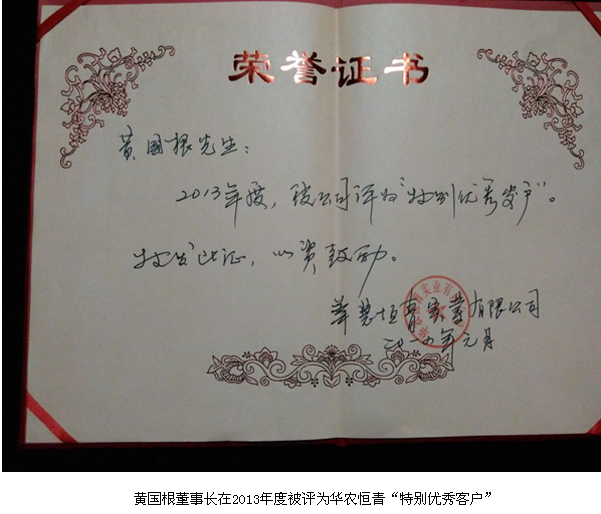 荣誉证书
黄国根先生：
2013年度，被公司评为“特别优秀客户”。
特发此证，以资鼓励。
華農恒青实業有限公司
二〇一四年元月
黄国根董事长在2013年度被评为华农恒青“特别优秀客户”